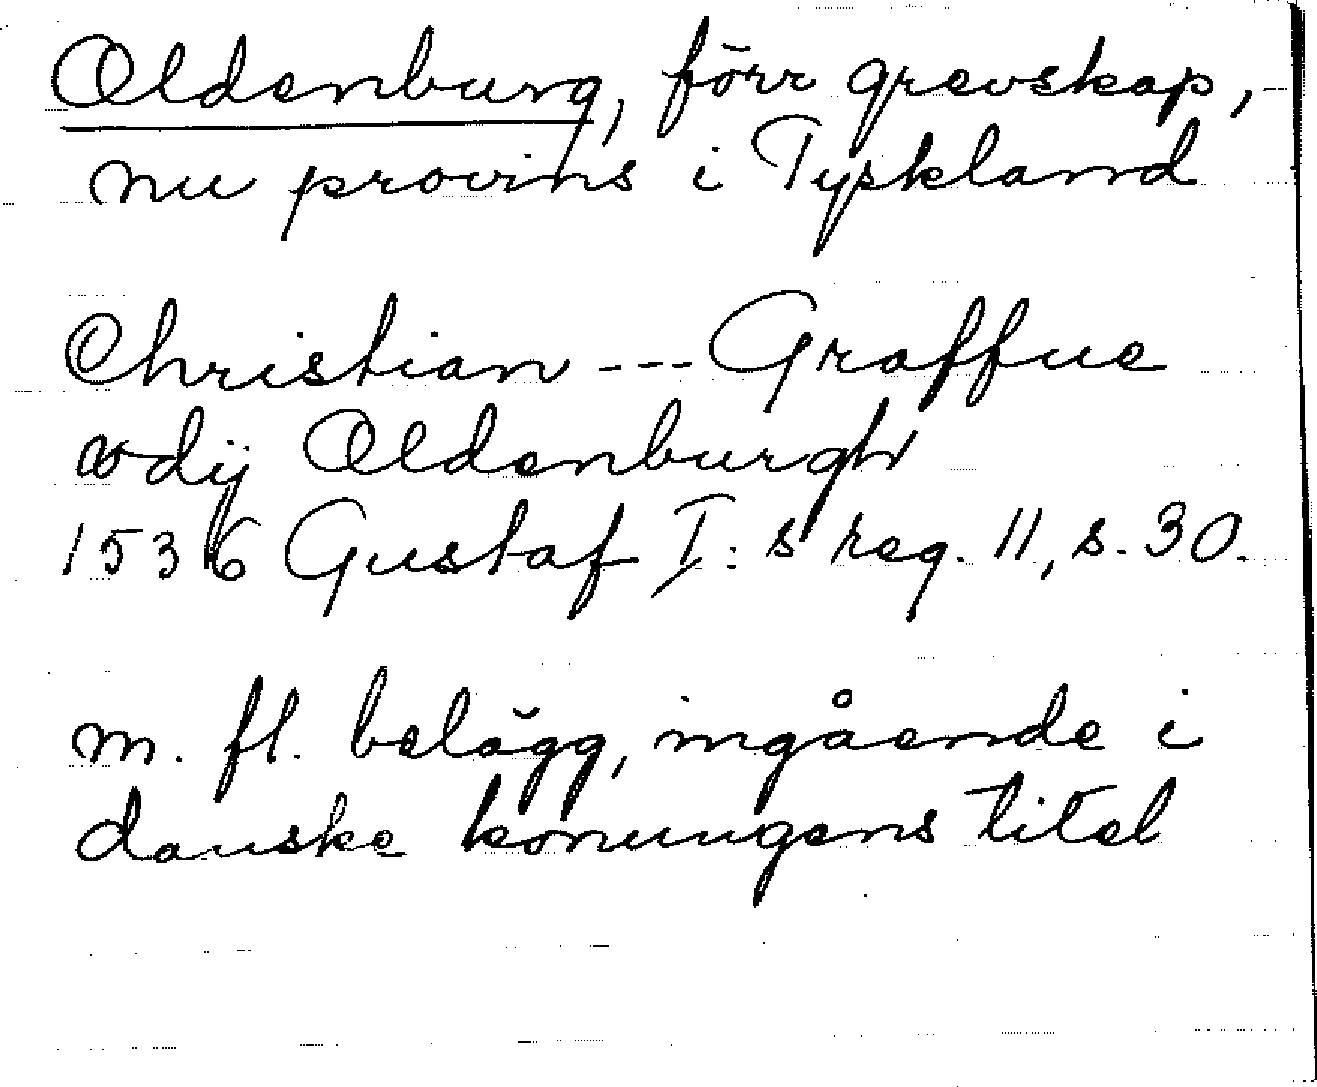 Oldenburg, förr grevskap,
nu provins i Tyskland
Christian --- Graffue
vdij Oldenburgh
1536 Gustaf I:s reg. 11, s. 30.
m. fl. belägg, ingående i
danske konungens titel